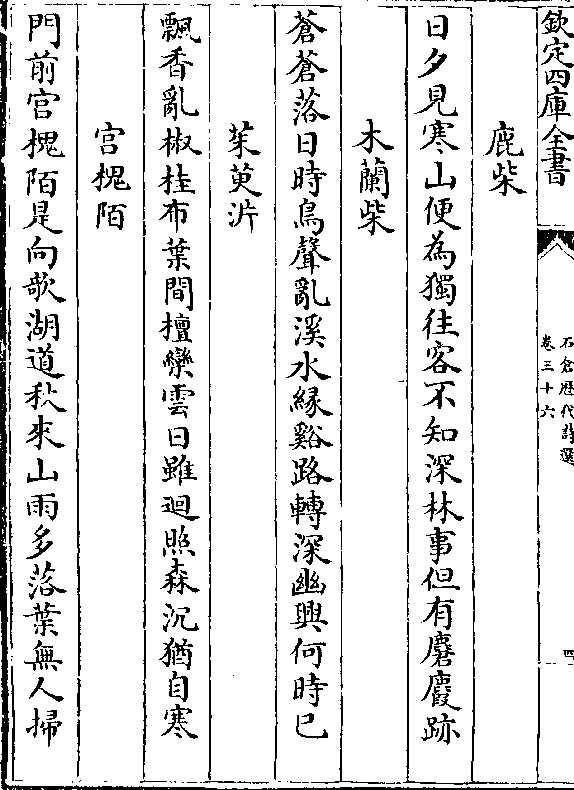 欽定四庫全書
石倉歴代詩選
卷三十六
四
鹿柴
日夕見寒山便為獨往客不知深林事但有麏麚跡
木蘭柴
蒼蒼落日時鳥聲亂溪水縁谿路轉深幽興何時已
茱萸沜
飄香亂椒桂布葉間檀欒雲日雖迴照森沉猶自寒
宫槐陌
門前宫槐陌是向欹湖道秋來山雨多落葉無人掃